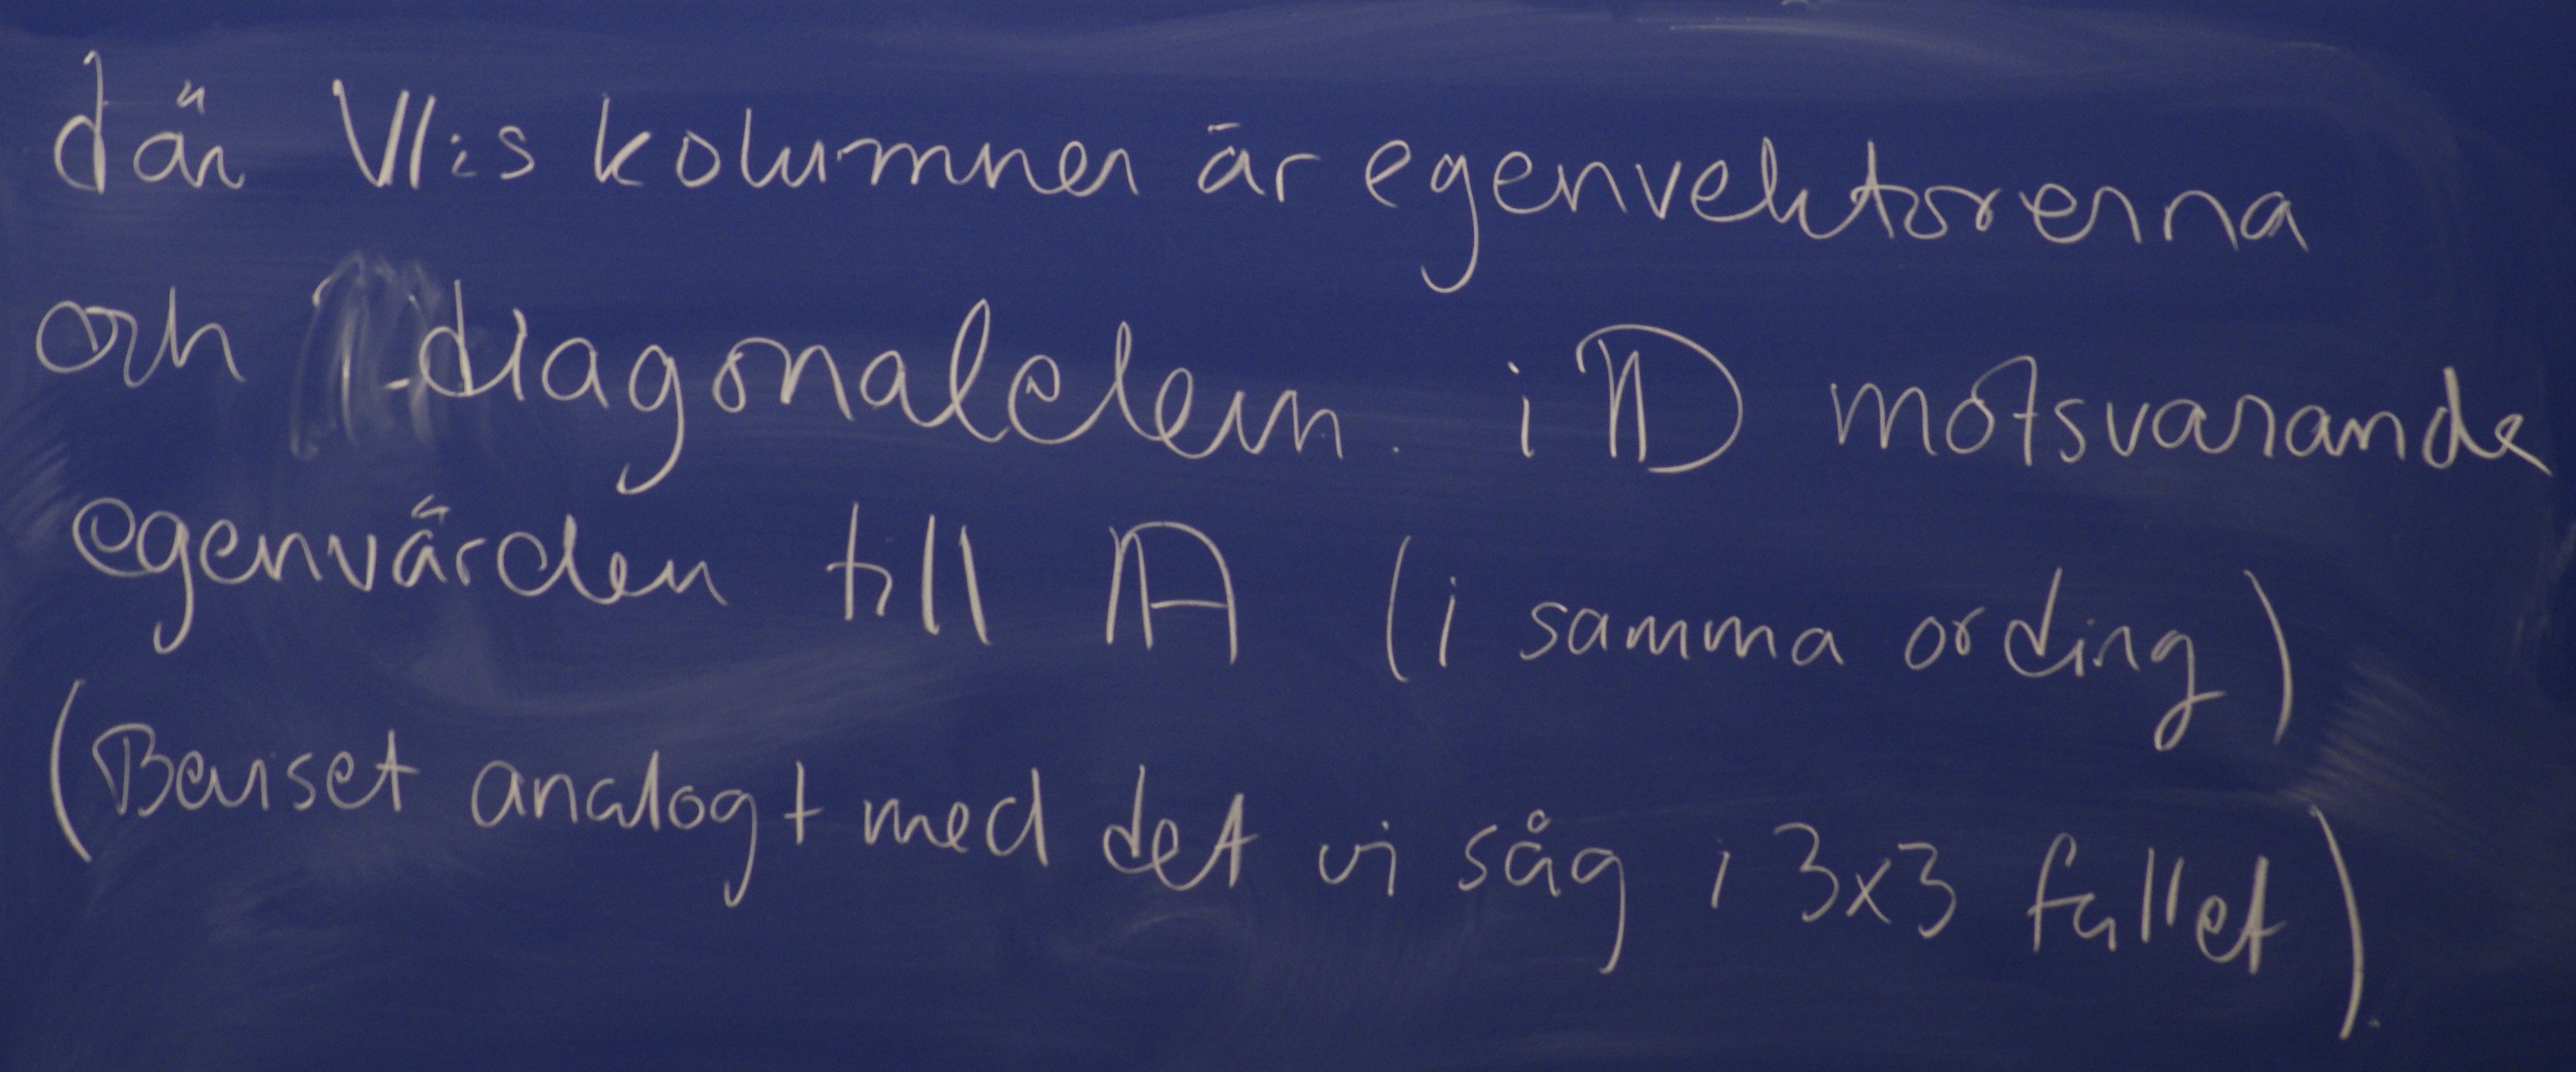 där V:s kolumner är egenvektorerna
och diagonalelem. i D motsvarande
egenvärden till A (i samma ording)
(Beviset analogt med det vi såg i 3x3 fallet).